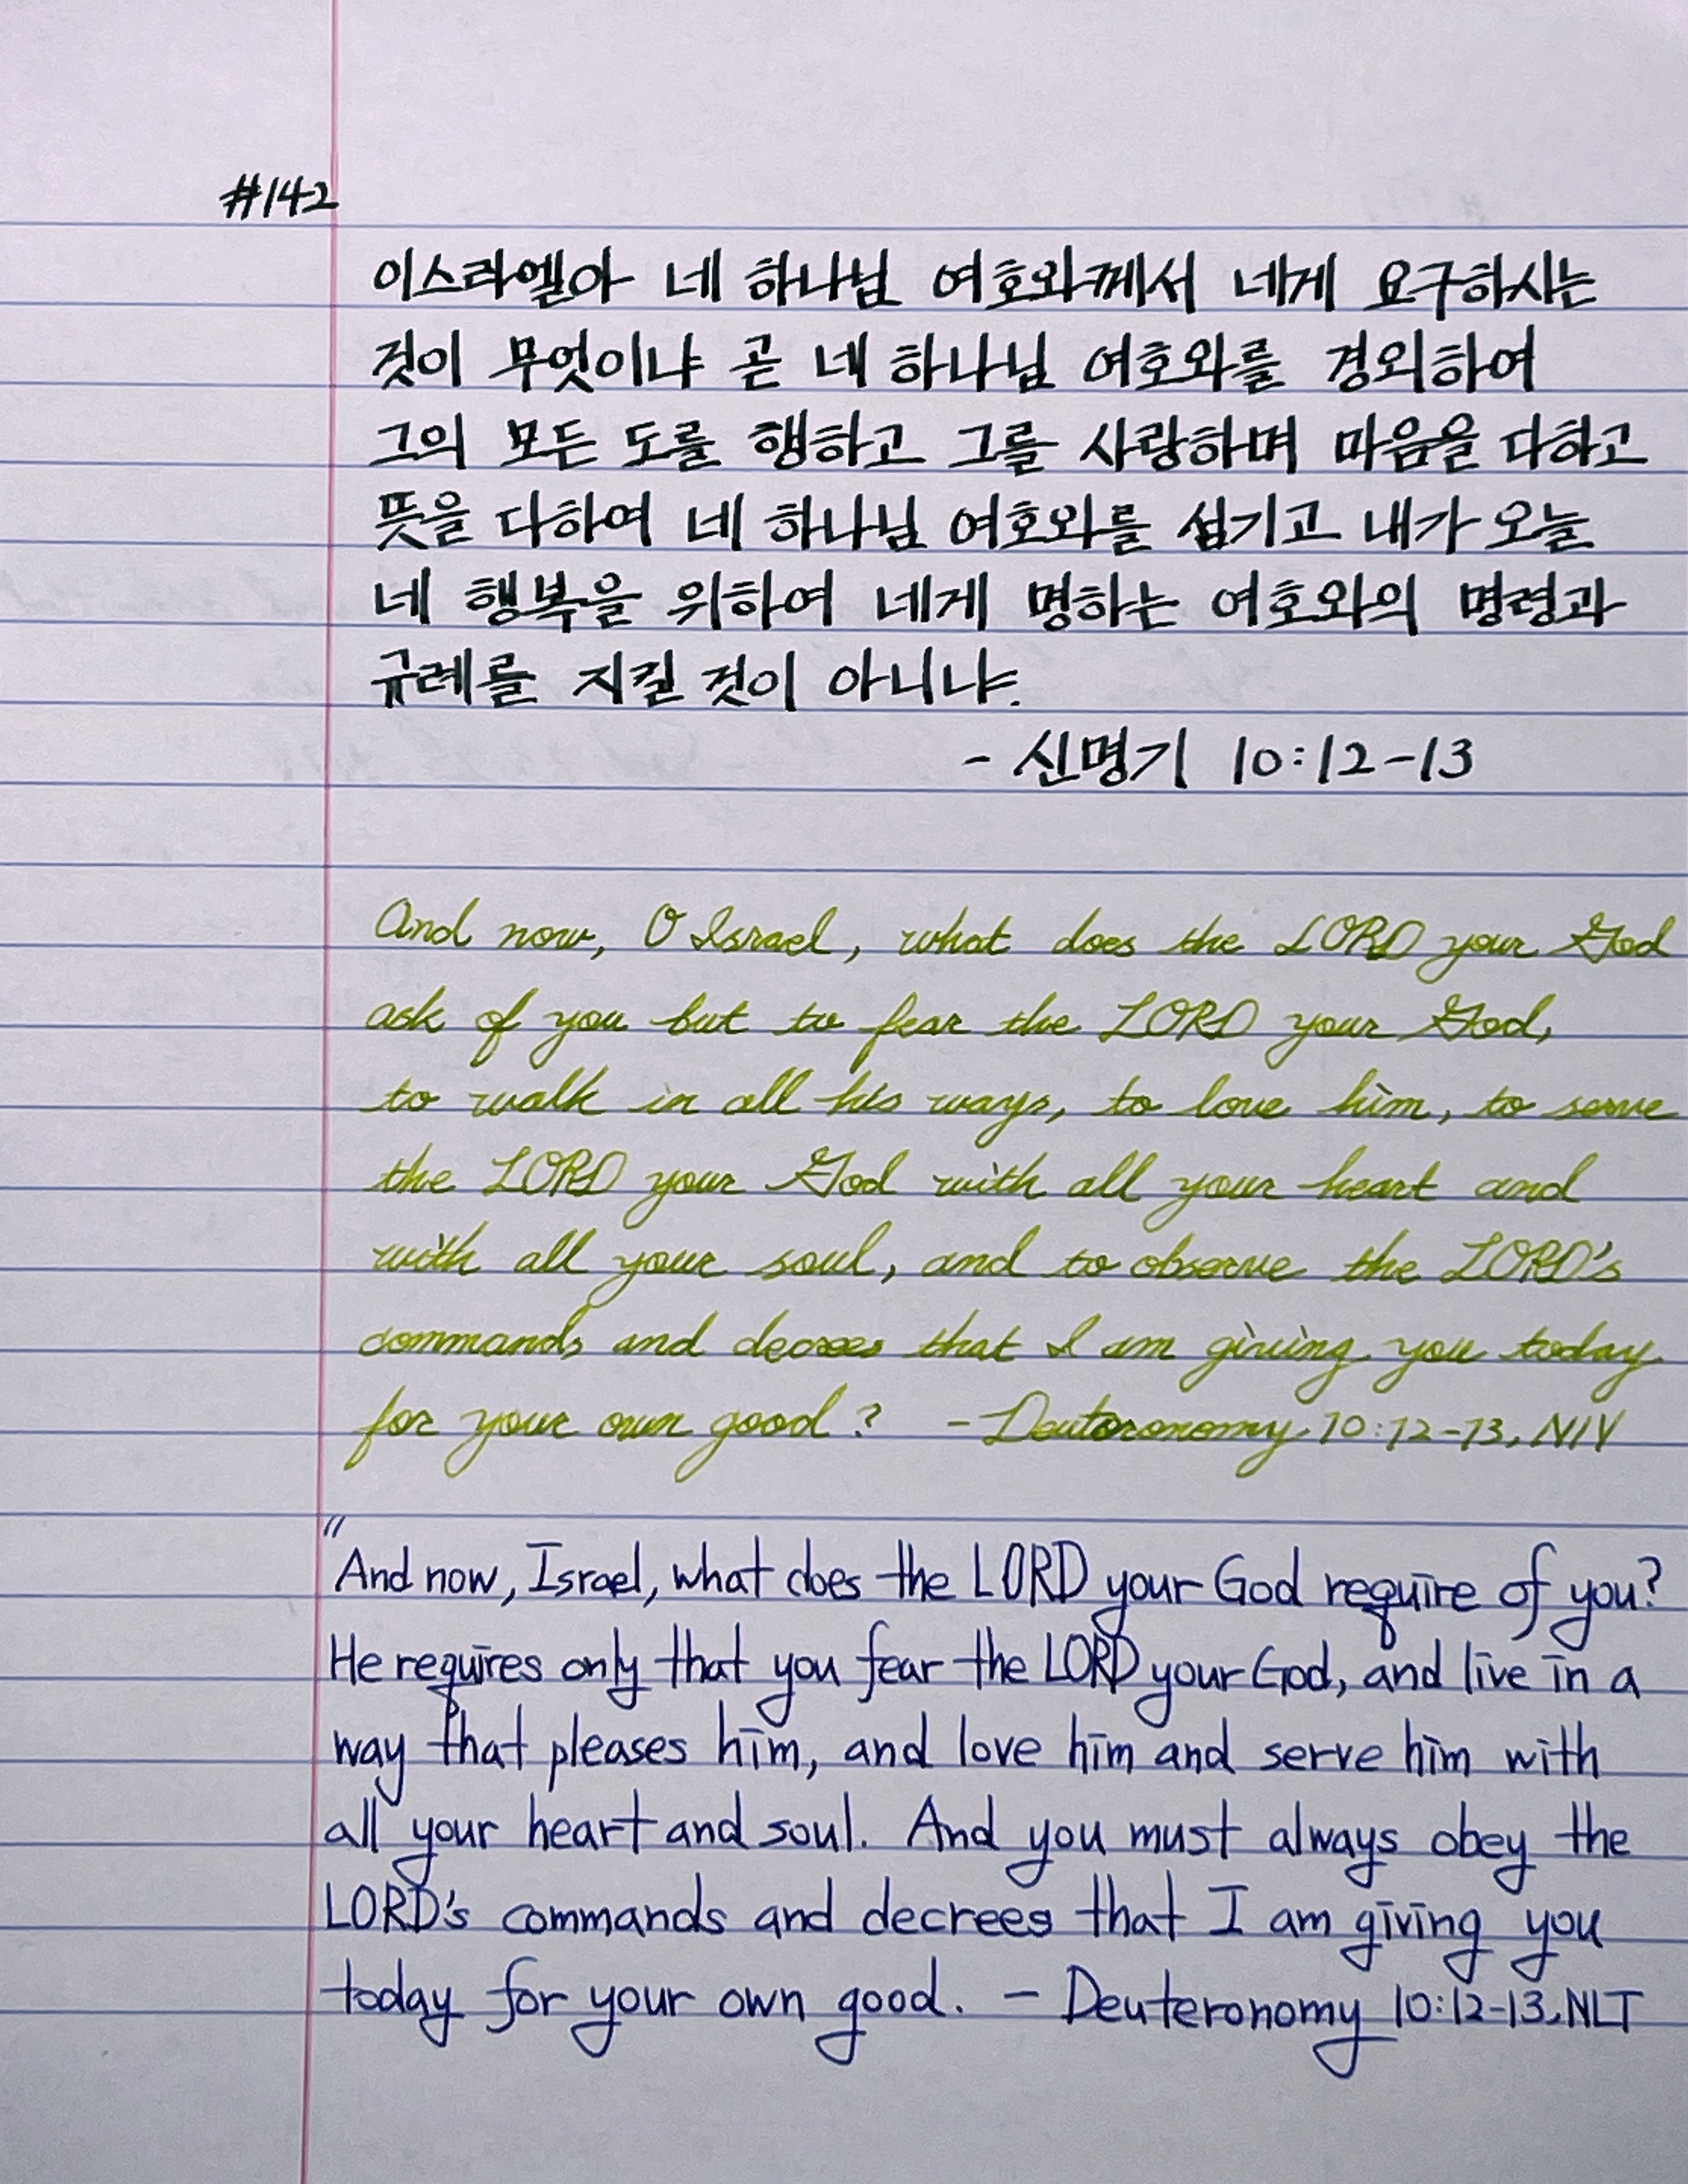 #142
이스라엘아 네 하나님 여호와께서 네게 요구하시는
것이 무엇이냐 곧 네 하나님 여호와를 경외하여
그의 모든 도를 행하고 그를 사랑하며 마음을 다하고
뜻을 다하여 네 하나님 여호와를 섬기고 내가 오늘
네 행복을 위하여 네게 명하는 여호와의 명령과
규례를 지킬 것이 아니냐.
- 신명기 10:12-13
And now, O Israel, what does the LORD your God
ask of you but to fear the LORD your God,
to walk in all his ways, to love him, to serve
the LORD your God with all your heart and
with all your soul, and to observe the LORD's
commands and decrees that I am giving you today
for your own good? - Deuteronomy 10:12-13, NIV
"And now, Israel, what does the LORD your God require of you?
He requires only that you fear the LORD your God, and live in a
way that pleases him, and love him and serve him with
all your heart and soul. And you must always obey the
LORD's commands and decrees that I am giving you
today for your own good. - Deuteronomy 10:12-13, NLT